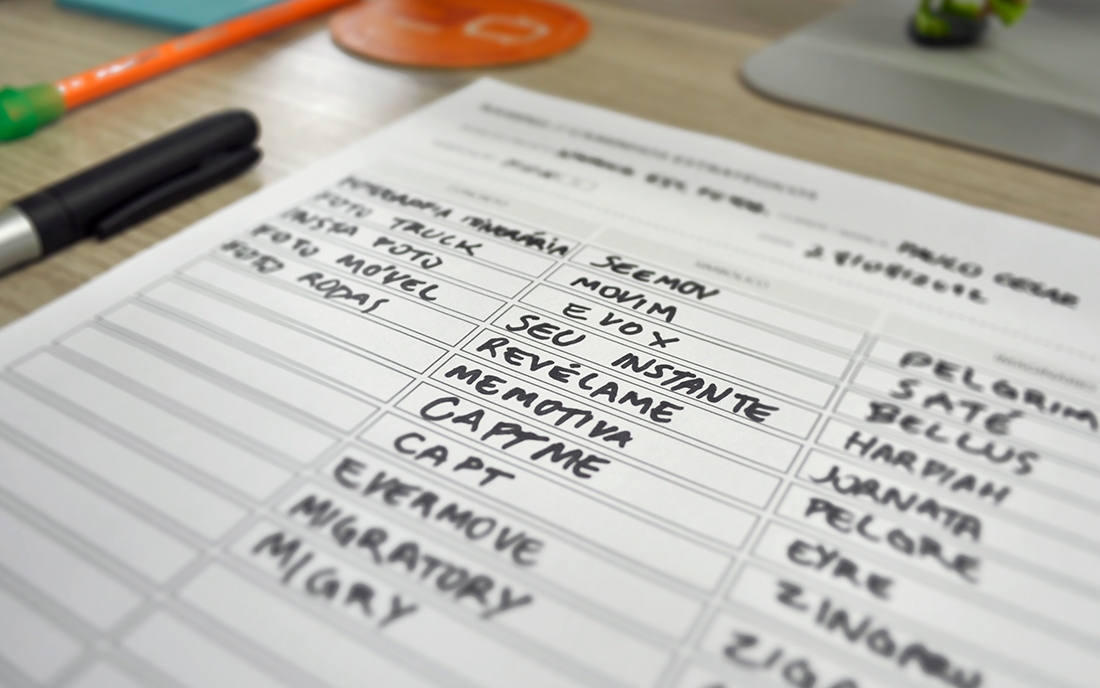 PAULO CESAR
FOTOGRAFIA ITINERÁRIA
FOTO TRUCK
INSTA FOTO
FOTO MÓVEL
FOTO RODAS
SEEMOV
MOVIM
EVOX
SEU INSTANTE
REVÉLAME
MEMOTIVA
CAPTME
CAPT
EVERMOVE
MIGRATORY
MIGRY
PELGRIM
SATÉ
BELLUS
HARPIAH
JORNATA
PELGRE
EYRE